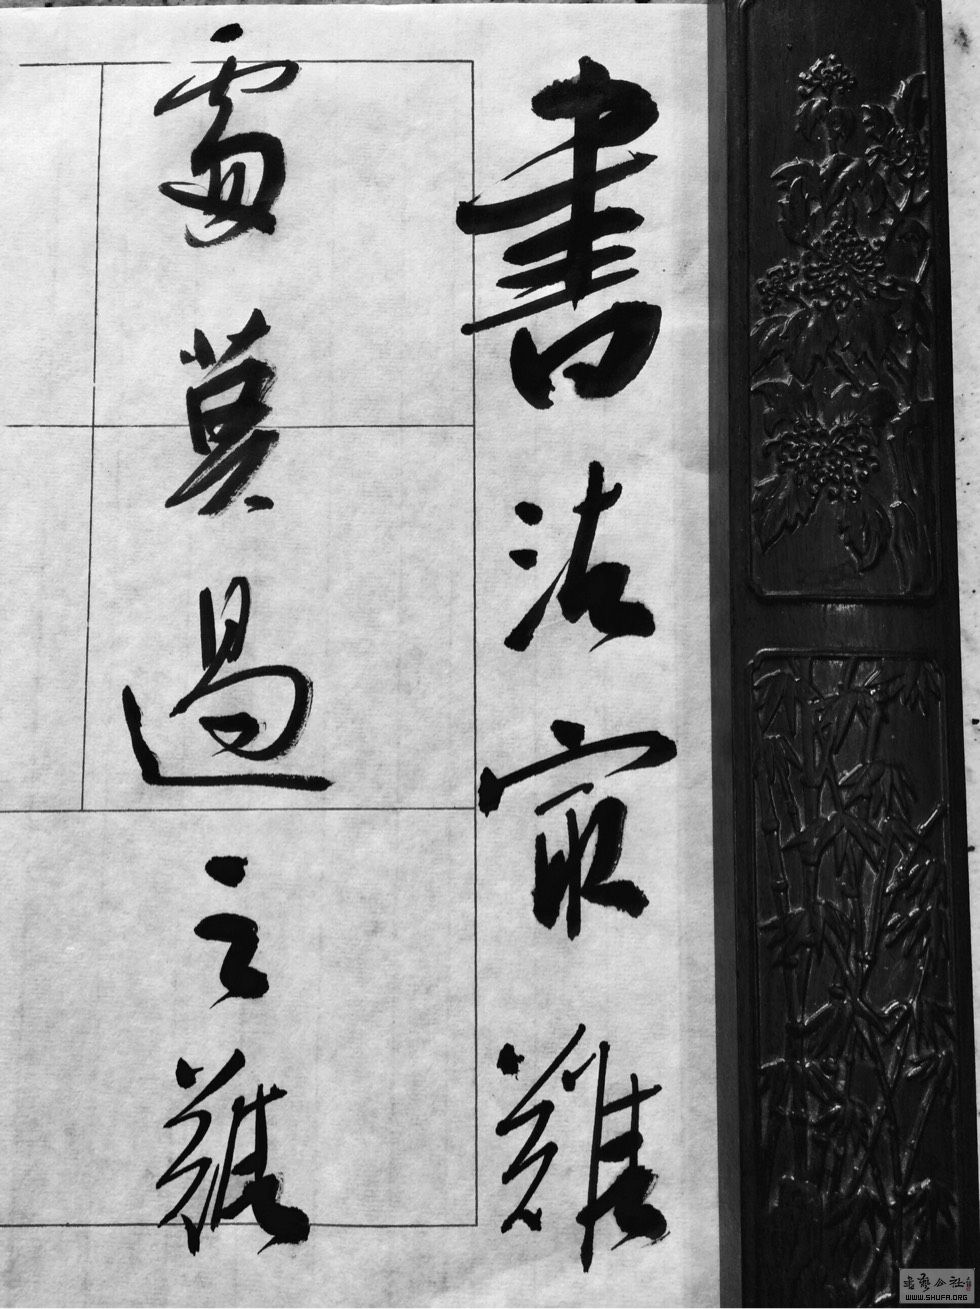 書法最難
處莫過之難
書藝公社
WWW.SHUFA.ORG